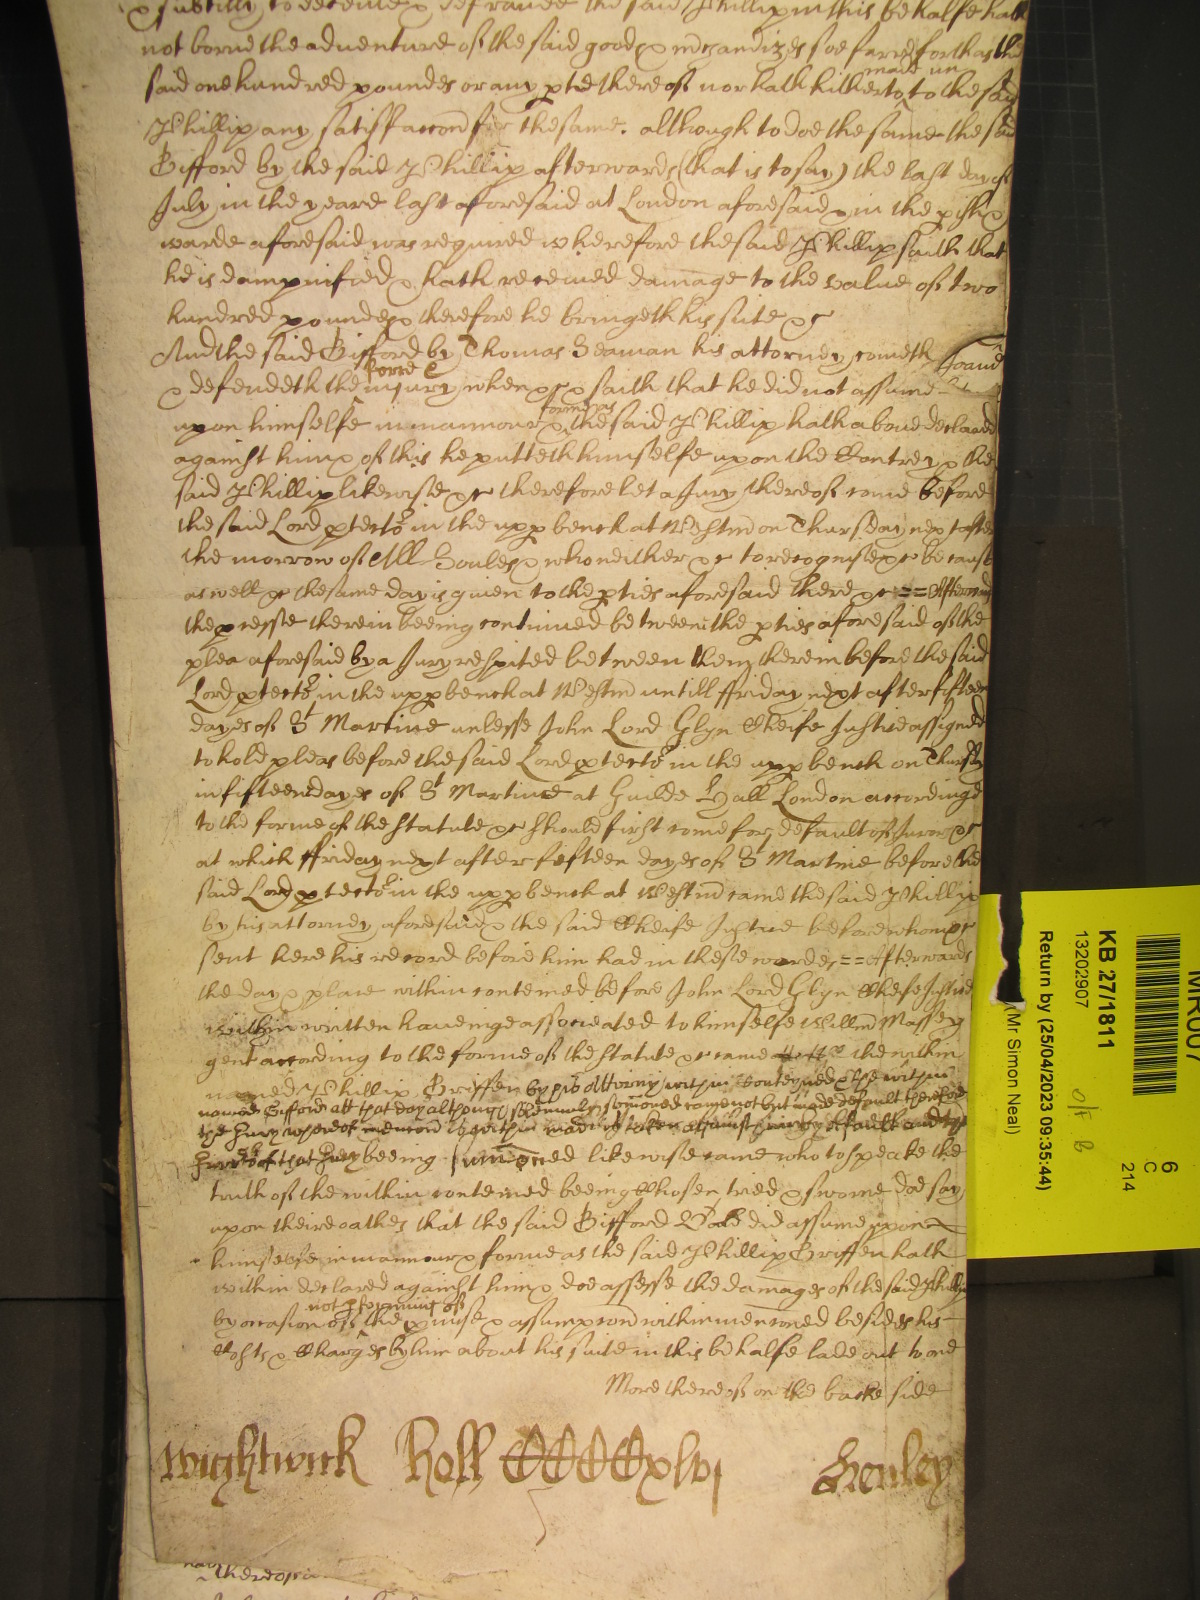 & subtilly to deceive & defraude the said Phillip in this behalfe hath
not borne the adventure of the said goods & mrchandizes soe farre forth as the
said one hundred poundes or any pte thereof nor hath hitherto made unto the said
Phillip any satisfaccon for the same. although to doe the same the said
Gifford by the said Phillip afterwards (that is to say) the last day of
July in the yeare last aforesaid at London aforesaid in the pish &
warde aforesaid was required wherefore the said Phillip saith that
he is dampnified & hath received damage to the value of two
hundred poundes & therefore he bringeth his suite &c
And the said Gifford by Thomas Seaman his attorney cometh
& defendeth the force & injury when &c & saith that he did not assume
upon himselfe in mannour & forme as the said Phillip hath above declared
against him & of this he putteth himselfe upon the Contrey & the
said Phillip likewise &c therefore let a Jury thereof come before
the said Lord ptector in the upp bench at Westm on Thursday next after
the morrow of All Soules & who neither &c to recognise &c because
as well &c the same day is given to the pties aforesaid there &c == Afterwards
the pcesse therein beeing continued betweene the pties aforesaid of the
plea aforesaid by a Jury respited between them therein before the said
Lord ptector in the upp bench at Westm untill ffriday next after fifteen
dayes of St Martine unlesse John Lord Glyn Cheife Justice assigned
to hold pleas before the said Lord ptector in the upp bench on Thursday
in fifteene dayes of St Martine at Guilde Hall London accordinge
to the forme of the statute &c should first come for default of Juror &c
at which ffriday next after fifteen dayes of St Martine before the
said Lord ptector in the upp bench at Westm came the said Phillip
by his attorney aforesaid & the said Cheife Justice before whome &c
sent here his record before him had in these wordes == Afterwards
the day & place within conteined before John Lord Glyn Cheife Justice
within written haveinge associated to himselfe Willm Massey
gent according to the forme of the statute &c came the within
named Phillip Griffen by his Attorny within conteyned & the within
named Gifford att that day although sollemnly sumoned came not but made default therefore
the Jury whereof mencon is within made is taken against him by default and the
Jurors of that Jury beeing sumoned likewise came who to speake the
truth of the within conteined beeing Chosen tried & sworne doe say
upon theire oathes that the said Gifford Bale did assume upon
himselfe in mannour & forme as the said Phillip Griffen hath
within declared against him & doe assesse the damages of the said Phillip
by occasion of the not pforming of pmise & assumpcon within mencioned besides his
Costs & Charges by him about his suite in this behalfe laide out to one
More thereof on the backe side
Wightwick Roll CCCCxlvj Henley
thereof
MR007
KB 27/1811
13202907
Return by (25/04/2023 09:35:44)
(Mr Simon Neal)
6
C
214